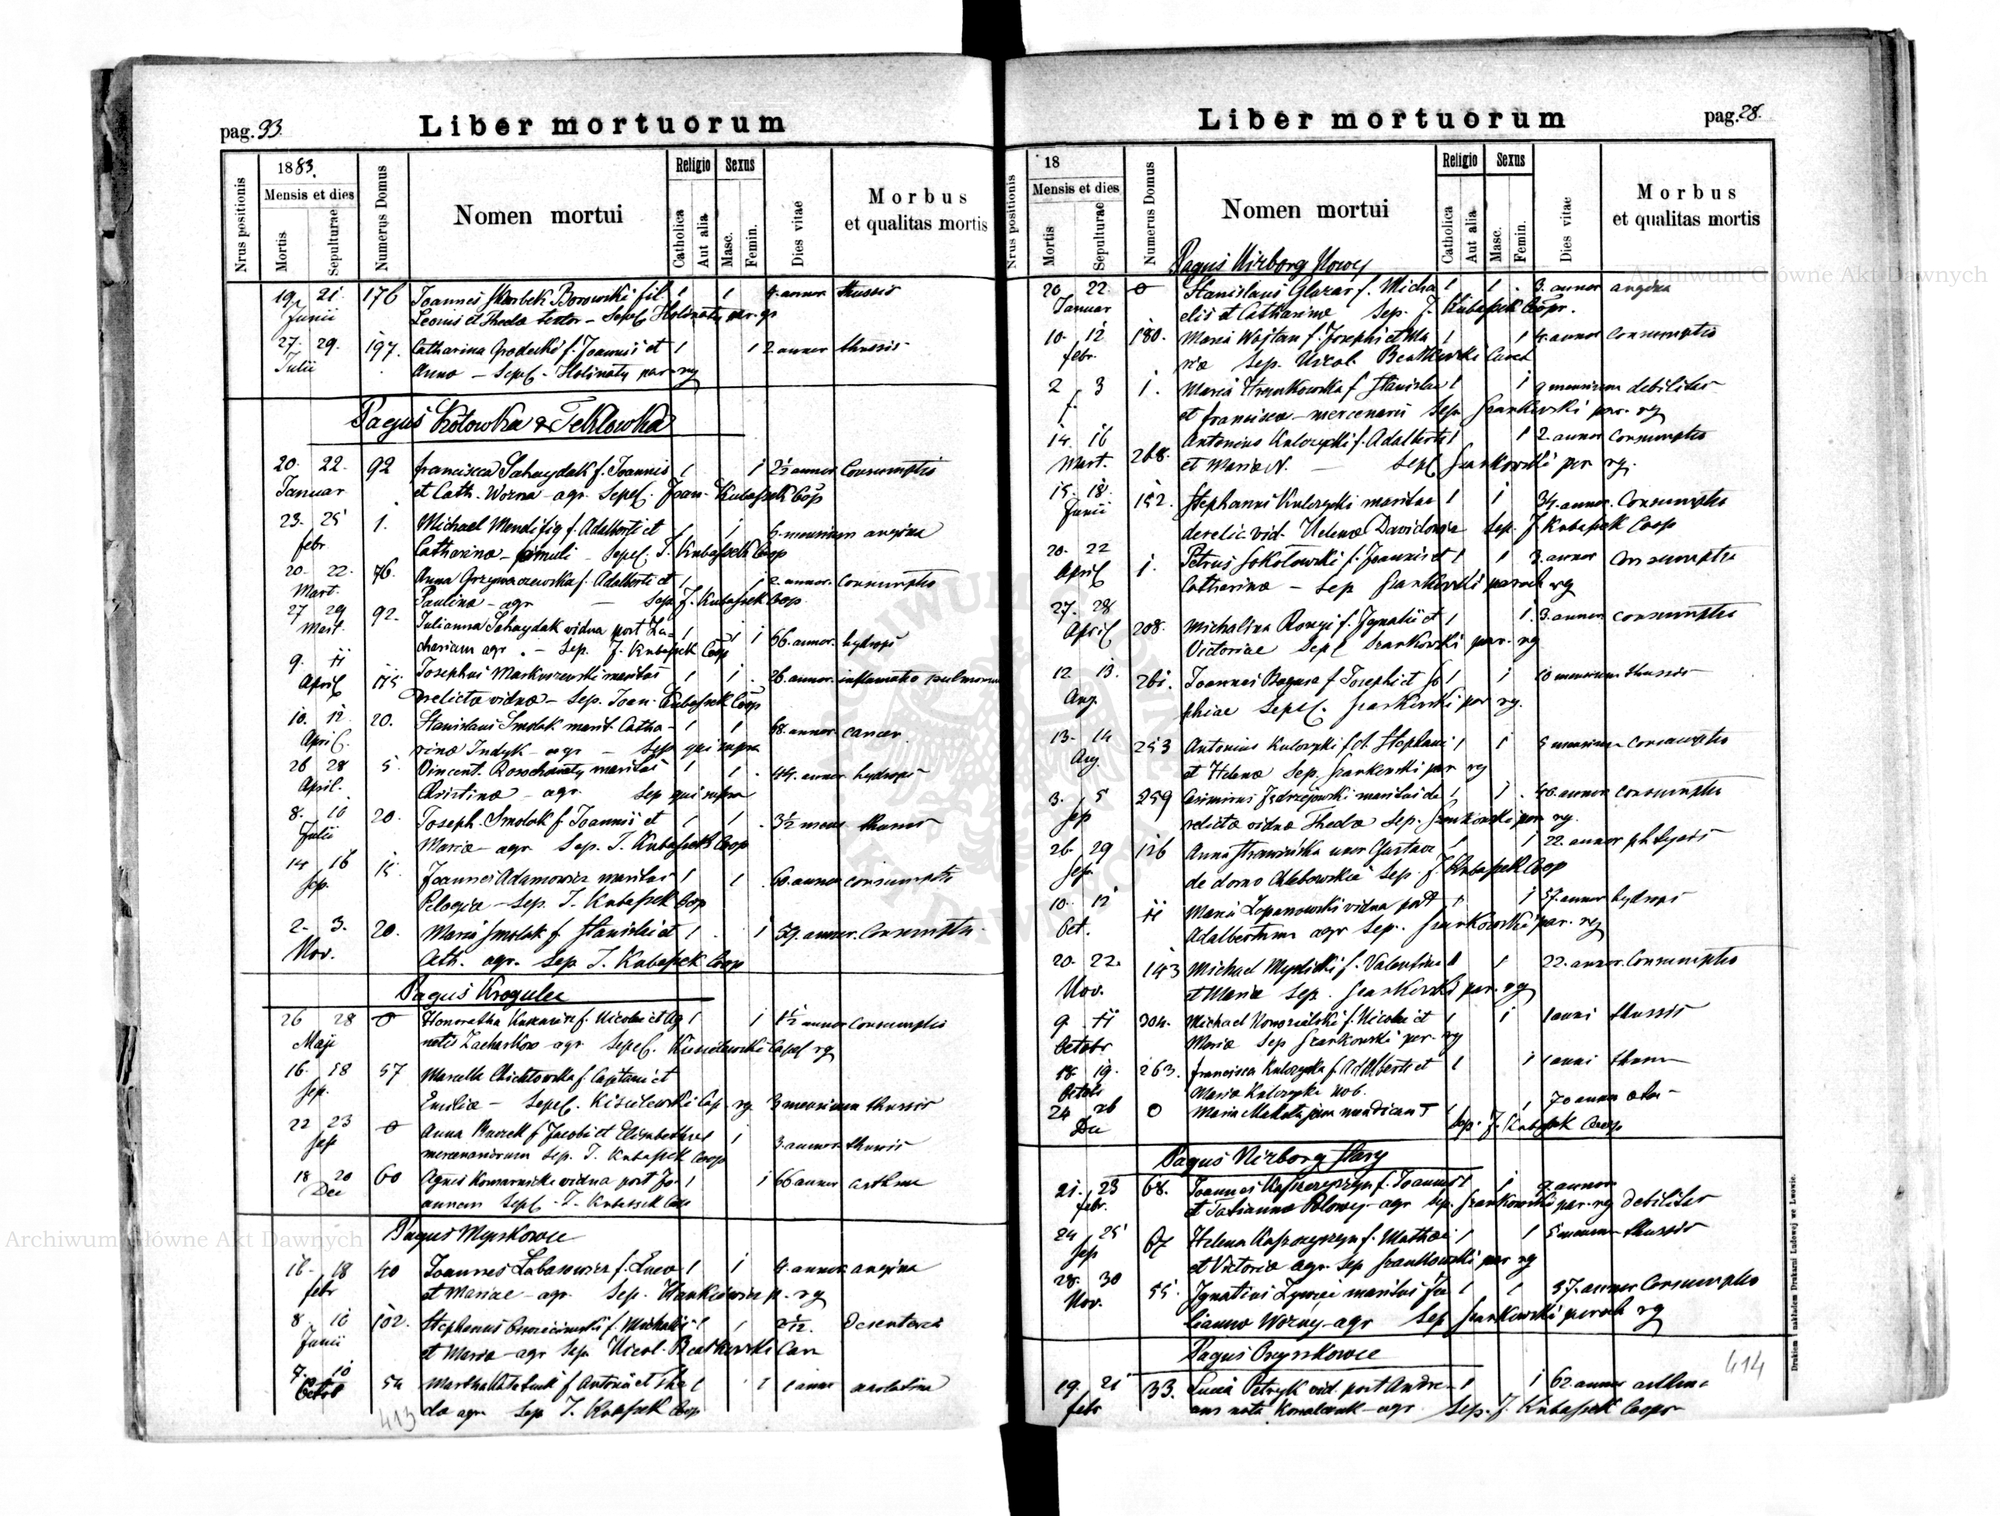 pag. 93.
Liber mortuorum
Nrus positionis
1883.
Mensis et dies
Mortis
Sepulturae
Numerus Domus
Nomen mortui
Religio
Catholica
Aut alia
Sexus
Masc.
Femin.
Dies vitae
Morbus
et qualitas mortis
19 21 176 Joannes Skarbek Borowski fil. 1 1 4. annor tussis
Junii Leonis et Theda - Sepel. Holinaty par. rg
27. 29. 197. Catharina Grodecki f. Joannis et 1 1 2 annor tussis
Julii Anna - Sepel. Holinaty par. rg
Pagus Kotowka & Teklowka
20. 22. 92 Francisca Sahaydak f. Joannis 1 1 2½ annor Consumptio
Januar et Cath. Wozna agr. Sepel. Joan. Kubassek Coop
23. 25 1. Michael f. Adalberti et 1 1 5. mensium angina
febr Catharina - Sepel. J. Kubassek Coop
20. 22. 76. Anna Grzymaczewska f. Adalberti et 1 1 2. annor. Consumptio
Mart. Paulina - agr - Sep J. Kubassek Coop.
27 29 92. Julianna Sahaydak vidua post Za- 1 1 56. annor. hydrops
Mart. chariam agr. - Sep. J. Kubassek Coop
9. 11 115. Josephus Markuszewski maritus 1 1. 26. annor. inflamatio pulmonum
April relicta vidua - Sep. Joan. Kubassek Coop
10. 12 20. Stanislaus Smolak marit. Catha- 1 1 68. annor cancer
April. rina Indyk - agr - Sep qui supra
26 28 5. Vincent. Rosochaty maritus 1 1. 44. annor hydrops
April. Christina - agr. Sep qui supra
8. 10 20. Joseph. Smolak f Joannis et 1 1 3½ mens tussis
Julii Maria - agr Sep. J. Kubassek Coop
14 16 15. Joannes Adamowicz maritus 1 1 60. annor consumptio
Sep. Pelagia - Sep. J. Kubassek Coop
2. 3. 20. Maria Smolak f Stanislai et 1 1 59. annor. Consumptio
Nov. Cath. agr. Sep J. Kubassek Coop
Pagus Kregulec
26 28 0 Honoratha f. Nicolai et Ag 1 1 1½ annor Consumptio
Maji netis Zacharkow agr Sepel. Kisielewski Capel rg
16. 18 57 Marcella f. Capitani et
Sep. Emilia - Sepel. Kisielewski Cap. rg. 3 mensium tussis
22 23 0 Anna f Jacobi et Elisabetha 1 1 3. annor tussis
Sep Sep. J. Kubassek Coop
18 20 60 Agnes Komarnicka vidua post Jo- 1 1 66 annor asthma
Dec annem Sepel - J. Kubassek Coop
Pagus Myszkowce
16. 18 40 Joannes Labasowicz f. Luca 1 1 4. annor angina
febr et Mariae - agr Sep. Hankiewicz p. rg
8. 10 102. Stephanus f. Michaelis 1 1 2 1/12. Desenteria
Junii et Maria agr Sep Nicol. Beatkowski Car
7. 10 54 Martha f Antonii et The 1 1 1 anni
Octob da agr Sep J. Kubassek Coop
413
Liber mortuorum
pag. 28.
Nrus positionis
18
Mensis et dies
Mortis
Sepulturae
Numerus Domus
Nomen mortui
Religio
Catholica
Aut alia
Sexus
Masc.
Femin.
Dies vitae
Morbus
et qualitas mortis
Pagus Nizborg Nowy
20 22. 0 Stanislaus Glazar f. Micha 1 1. 3. annor angina
Januar elis et Catharina Sep. J. Kubassek Coopr.
10. 12 180. Maria Wojtan f. Josephi et Ma 1 1 4. annor Consumptio
febr. ria Sep. Nicol Beatkowski Curat
2 3 1. Maria f Stanislai 1 1 9 mensium debilitas
f. et Francisca - mercenarii Sep. Szankowski par. rg
14. 16 268. Antonius Kulczycki f. Adalberti 1 1 2. annor Consumptio
Mart. et Maria N. - Sepel Szankowski par rg.
15. 18. 152. Stephanus Kulczycki maritus 1 1 34. annor. Consumptio
Junii derelic. vid. Helena Davidowicz Sep. J. Kubassek Coop
20. 22 1. Petrus Sokolowski f. Joannis et 1 1 3. annor Consumptio
April Catharina - Sep Szankowski paroch rg
27. 28 208. Michalina Rongi f. Ignatii et 1 1. 3. annor consumptio
April Victoriae Sepel Szankowski par. rg
12. 13. 261. Joannes Bagusa f Josephi et So 1 1 10 mensium tussis
Aug. phiae Sepel. Szankowski par rg.
13. 14 253 Antonius Kulczycki f d. Stephani 1 1 5 mensium consumptio
Aug. et Helena Sep. Szankowski par rg
3. 5 259 Casimirus Jedrzejowski maritus de 1 1. 40. annor consumptio
Sep relicta vidua Theda Sep. Szankowski par rg.
26. 29 126 Anna uxor Gustavi 1 1 22. annor phtysis
Sep. de domo Chlebowska Sep. J. Kubassek Coop
10. 12 11 Maria Lopanowski vidua post 1 1 57. annor hydrops
Oct. Adalbertum agr Sep. Szankowski par. rg
20. 22. 143 Michael Myslicki f. Valentini 1 1 22. annor. Consumptio
Nov. et Maria Sep. Szankowski par. rg
9. 11 304. Michael f. Nicolai et 1 1 1 anni tussis
Octobr Maria Sep Szankowski par. rg
18. 19. 263. Francisca Kulczycka f. Adalberti et 1 1 1 anni tussis
Octob Maria Kulczycki nob.
24 26 0 Maria 1 1 70 annor
Dec Sep. J. Kubassek Coop
Pagus Nizborg Stary
21. 23 68. Joannes Kaszczyszyn f. Joannis 1 1 2. annor
febr. et Tatianna - agr Sep. Szankowski par. rg debilitas
24 25 67 Helena Kaszczyszyn f. Mathaei 1 1 5 mensium tussis
Sep et Victoria agr. Sep Szankowski par rg
28. 30 55. Ignatius Zywiei maritus Ju 1 1 57. annor Consumptio
Nov. lianna Wozny - agr Sep Szankowski paroch rg
Pagus Oryszkowce
19. 21 33. Lucia Petryk vid. post Andre- 1 1 62. annor asthma
febr am nata Kowalczuk - agr Sep. J. Kubassek Coopr
414
Drukiem i nakładem Drukarni Ludowej we Lwowie.
Archiwum Główne Akt Dawnych
Archiwum Główne Akt Dawnych
ARCHIWUM GŁÓWNE AKT DAWNYCH